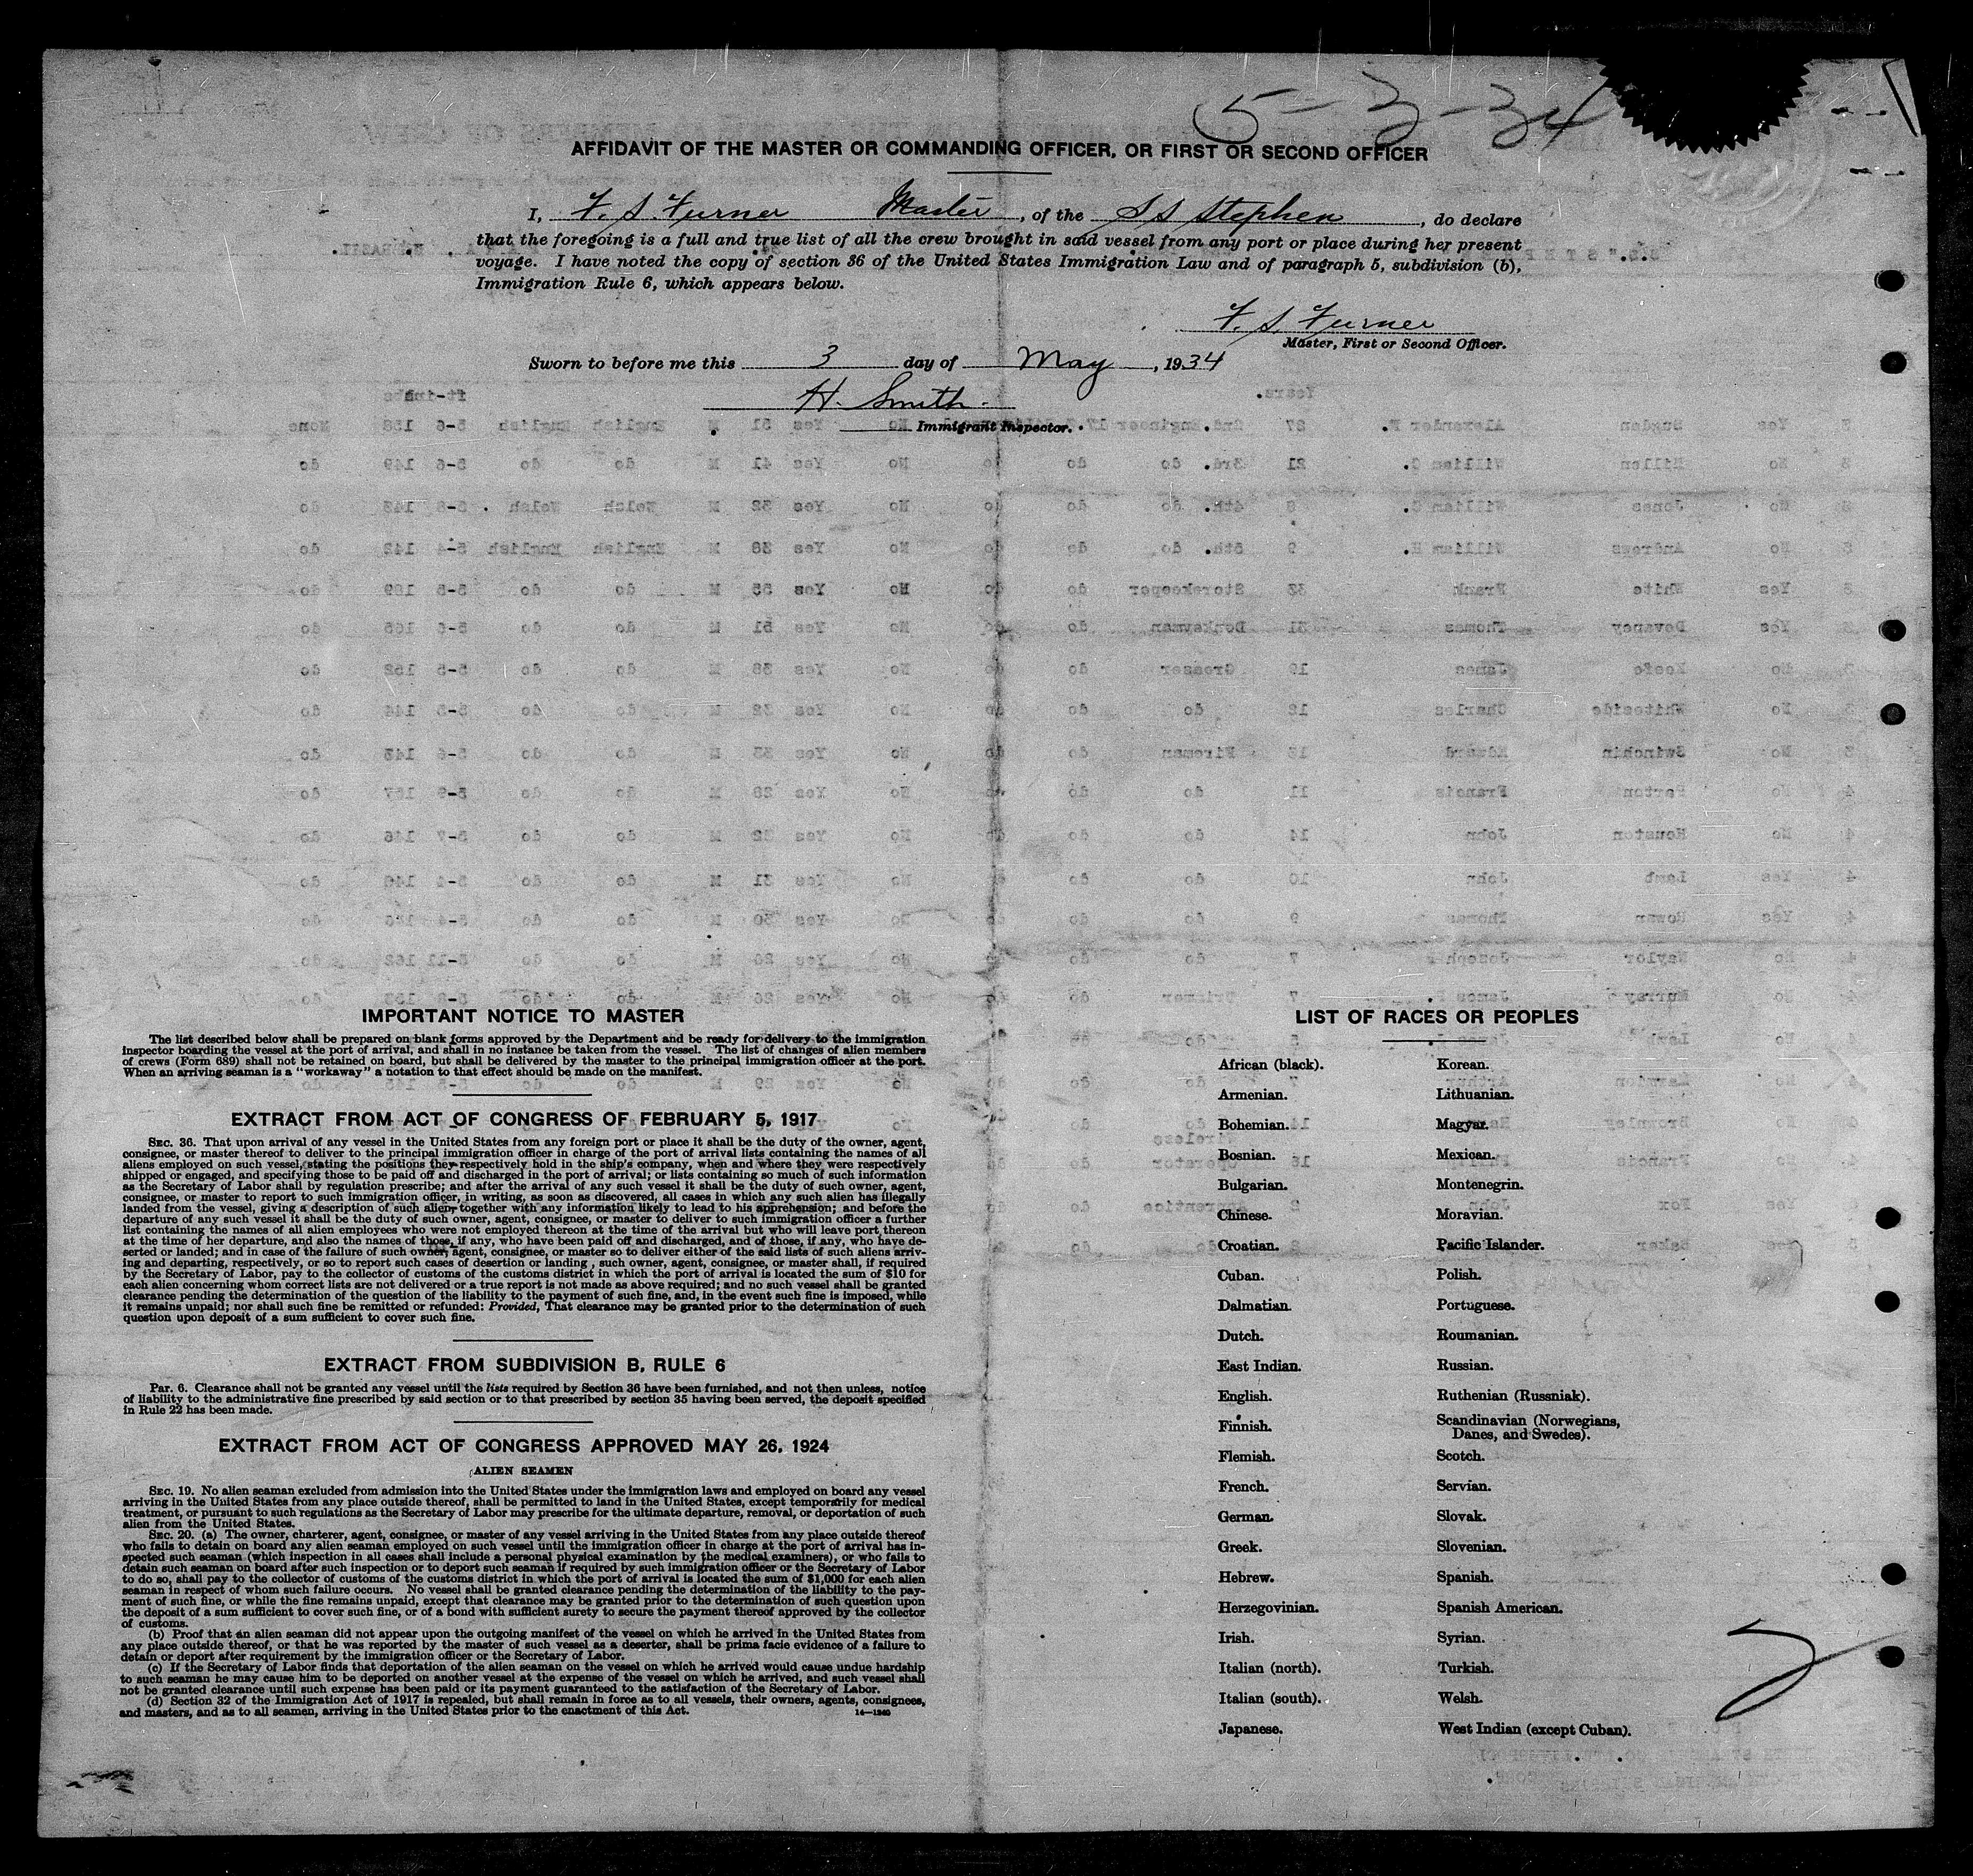 5-3-34
AFFIDAVIT OF THE MASTER OR COMMANDING OFFICER, OR FIRST OR SECOND OFFICER
I, F. S. Turner Master, of the SS Stephen, do declare
that the foregoing is a full and true list of all the crew brought in said vessel from any port or place during her present
voyage. I have noted the copy of section 36 of the United States Immigration Law and of paragraph 5, subdivision (b),
Immigration Rule 6, which appears below.
F. S. Turner
Master, First or Second Officer.
Sworn to before me this 3 day of May, 1934
H. Smith.
Immigrant Inspector.
IMPORTANT NOTICE TO MASTER
The list described below shall be prepared on blank forms approved by the Department and be ready for delivery to the immigration
inspector boarding the vessel at the port of arrival, and shall in no instance be taken from the vessel. The list of changes of alien members
of crews (Form 689) shall not be retained on board, but shall be delivered by the master to the principal immigration officer at the port.
When an arriving seaman is a "workaway" a notation to that effect should be made on the manifest.
EXTRACT FROM ACT OF CONGRESS OF FEBRUARY 5, 1917
SEC. 36. That upon arrival of any vessel in the United States from any foreign port or place it shall be the duty of the owner, agent,
consignee, or master thereof to deliver to the principal immigration officer in charge of the port of arrival lists containing the names of all
aliens employed on such vessel, stating the positions they respectively hold in the ship's company, when and where they were respectively
shipped or engaged, and specifying those to be paid off and discharged in the port of arrival; or lists containing so much of such information
as the Secretary of Labor shall by regulation prescribe; and after the arrival of any such vessel it shall be the duty of such owner, agent,
consignee, or master to report to such immigration officer, in writing, as soon as discovered, all cases in which any such alien has illegally
landed from the vessel, giving a description of such alien, together with any information likely to lead to his apprehension; and before the
departure of any such vessel it shall be the duty of such owner, agent, consignee, or master to deliver to such immigration officer a further
list containing the names of all alien employees who were not employed thereon at the time of the arrival but who will leave port thereon
at the time of her departure, and also the names of those, if any, who have been paid off and discharged, and of those, if any, who have de-
serted or landed; and in case of the failure of such owner, agent, consignee, or master so to deliver either of the said lists of such aliens arriv-
ing and departing, respectively, or so to report such cases of desertion or landing , such owner, agent, consignee, or master shall, if required
by the Secretary of Labor, pay to the collector of customs of the customs district in which the port of arrival is located the sum of $10 for
each alien concerning whom correct lists are not delivered or a true report is not made as above required; and no such vessel shall be granted
clearance pending the determination of the question of the liability to the payment of such fine, and, in the event such fine is imposed, while
it remains unpaid; nor shall such fine be remitted or refunded: Provided, That clearance may be granted prior to the determination of such
question upon deposit of a sum sufficient to cover such fine.
EXTRACT FROM SUBDIVISION B, RULE 6
PAR. 6. Clearance shall not be granted any vessel until the lists required by Section 36 have been furnished, and not then unless, notice
of liability to the administrative fine prescribed by said section or to that prescribed by section 35 having been served, the deposit specified
in Rule 22 has been made.
EXTRACT FROM ACT OF CONGRESS APPROVED MAY 26, 1924
ALIEN SEAMEN
SEC. 19. No alien seaman excluded from admission into the United States under the immigration laws and employed on board any vessel
arriving in the United States from any place outside thereof, shall be permitted to land in the United States, except temporarily for medical
treatment, or pursuant to such regulations as the Secretary of Labor may prescribe for the ultimate departure, removal, or deportation of such
alien from the United States.
SEC. 20. (a) The owner, charterer, agent, consignee, or master of any vessel arriving in the United States from any place outside thereof
who fails to detain on board any alien seaman employed on such vessel until the immigration officer in charge at the port of arrival has in-
spected such seaman (which inspection in all cases shall include a personal physical examination by the medical examiners), or who fails to
detain such seaman on board after such inspection or to deport such seaman if required by such immigration officer or the Secretary of Labor
to do so, shall pay to the collector of customs of the customs district in which the port of arrival is located the sum of $1,000 for each alien
seaman in respect of whom such failure occurs. No vessel shall be granted clearance pending the determination of the liability to the pay-
ment of such fine, or while the fine remains unpaid, except that clearance may be granted prior to the determination of such question upon
the deposit of a sum sufficient to cover such fine, or of a bond with sufficient surety to secure the payment thereof approved by the collector
of customs.
(b) Proof that an alien seaman did not appear upon the outgoing manifest of the vessel on which he arrived in the United States from
any place outside thereof, or that he was reported by the master of such vessel as a deserter, shall be prima facie evidence of a failure to
detain or deport after requirement by the immigration officer or the Secretary of Labor.
(c) If the Secretary of Labor finds that deportation of the alien seaman on the vessel on which he arrived would cause undue hardship
to such seaman he may cause him to be deported on another vessel at the expense of the vessel on which he arrived, and such vessel shall
not be granted clearance until such expense has been paid or its payment guaranteed to the satisfaction of the Secretary of Labor.
(d) Section 32 of the Immigration Act of 1917 is repealed, but shall remain in force as to all vessels, their owners, agents, consignees,
and masters, and as to all seamen, arriving in the United States prior to the enactment of this Act.
LIST OF RACES OR PEOPLES
African (black).
Armenian.
Bohemian.
Bosnian.
Bulgarian.
Chinese.
Croatian.
Cuban.
Dalmatian.
Dutch.
East Indian.
English.
Finnish.
Flemish.
French.
German.
Greek.
Hebrew.
Herzegovinian.
Irish.
Italian (north).
Italian (south).
Japanese.
Korean.
Lithuanian.
Magyar.
Mexican.
Montenegrin.
Moravian.
Pacific Islander.
Polish.
Portuguese.
Roumanian.
Russian.
Ruthenian (Russniak).
Scandinavian (Norwegians,
Danes, and Swedes).
Scotch.
Servian.
Slovak.
Slovenian.
Spanish.
Spanish American.
Syrian.
Turkish.
Welsh.
West Indian (except Cuban).